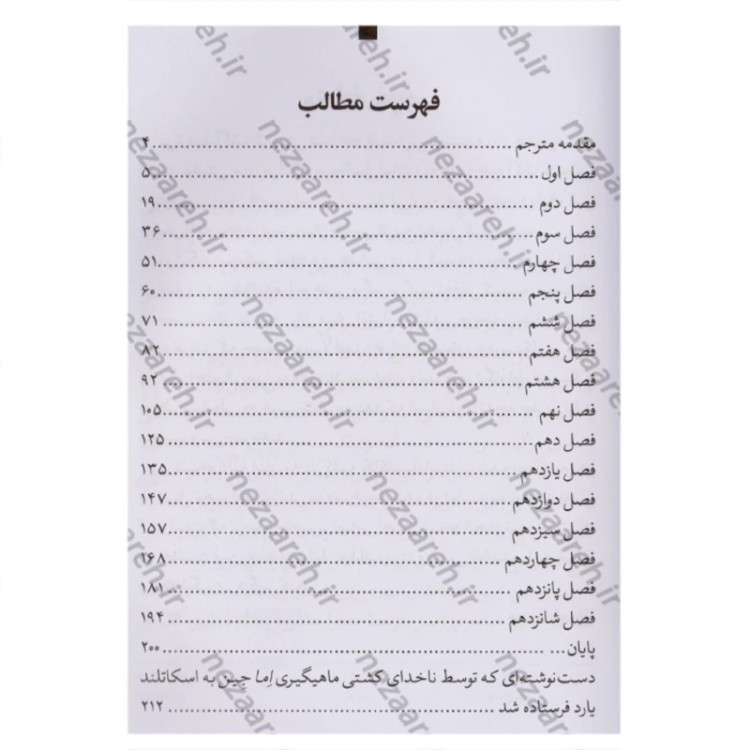 فهرست مطالب
مقدمه مترجم ........ ۴
فصل اول ........ ۵
فصل دوم ........ ۱۹
فصل سوم ........ ۳۶
فصل چهارم ........ ۵۱
فصل پنجم ........ ۶۰
فصل ششم ........ ۷۱
فصل هفتم ........ ۸۲
فصل هشتم ........ ۹۲
فصل نهم ........ ۱۰۵
فصل دهم ........ ۱۲۵
فصل یازدهم ........ ۱۳۵
فصل دوازدهم ........ ۱۴۷
فصل سیزدهم ........ ۱۵۷
فصل چهاردهم ........ ۱۶۸
فصل پانزدهم ........ ۱۸۱
فصل شانزدهم ........ ۱۹۴
پایان... ........ ۲۰۰
دست‌نوشته‌ای که توسط ناخدای کشتی ماهیگیری اِما جین به اسکاتلند
یارد فرستاده شد ........ ۲۱۲
nezaareh.ir